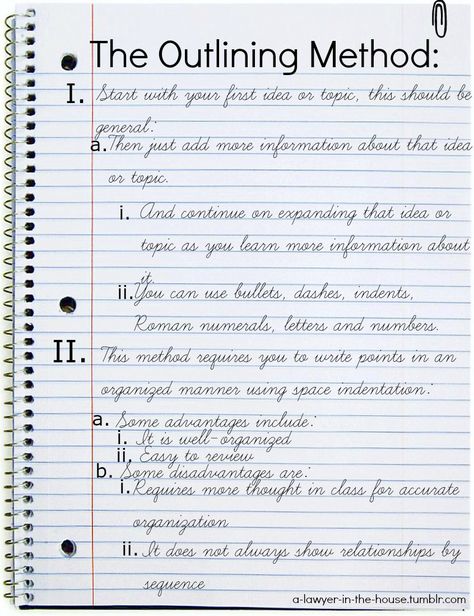 The Outlining Method:
I. Start with your first idea or topic, this should be
general:
a. Then just add more information about that idea
or topic.
i. And continue on expanding that idea or
topic as you learn more information about
it.
ii. You can use bullets, dashes, indents,
Roman numerals, letters and numbers.
II. This method requires you to write points in an
organized manner using space indentation:
a. Some advantages include:
i. It is well-organized
ii. Easy to review
b. Some disadvantages are:
i. Requires more thought in class for accurate
organization
ii. It does not always show relationships by
sequence
a-lawyer-in-the-house.tumblr.com